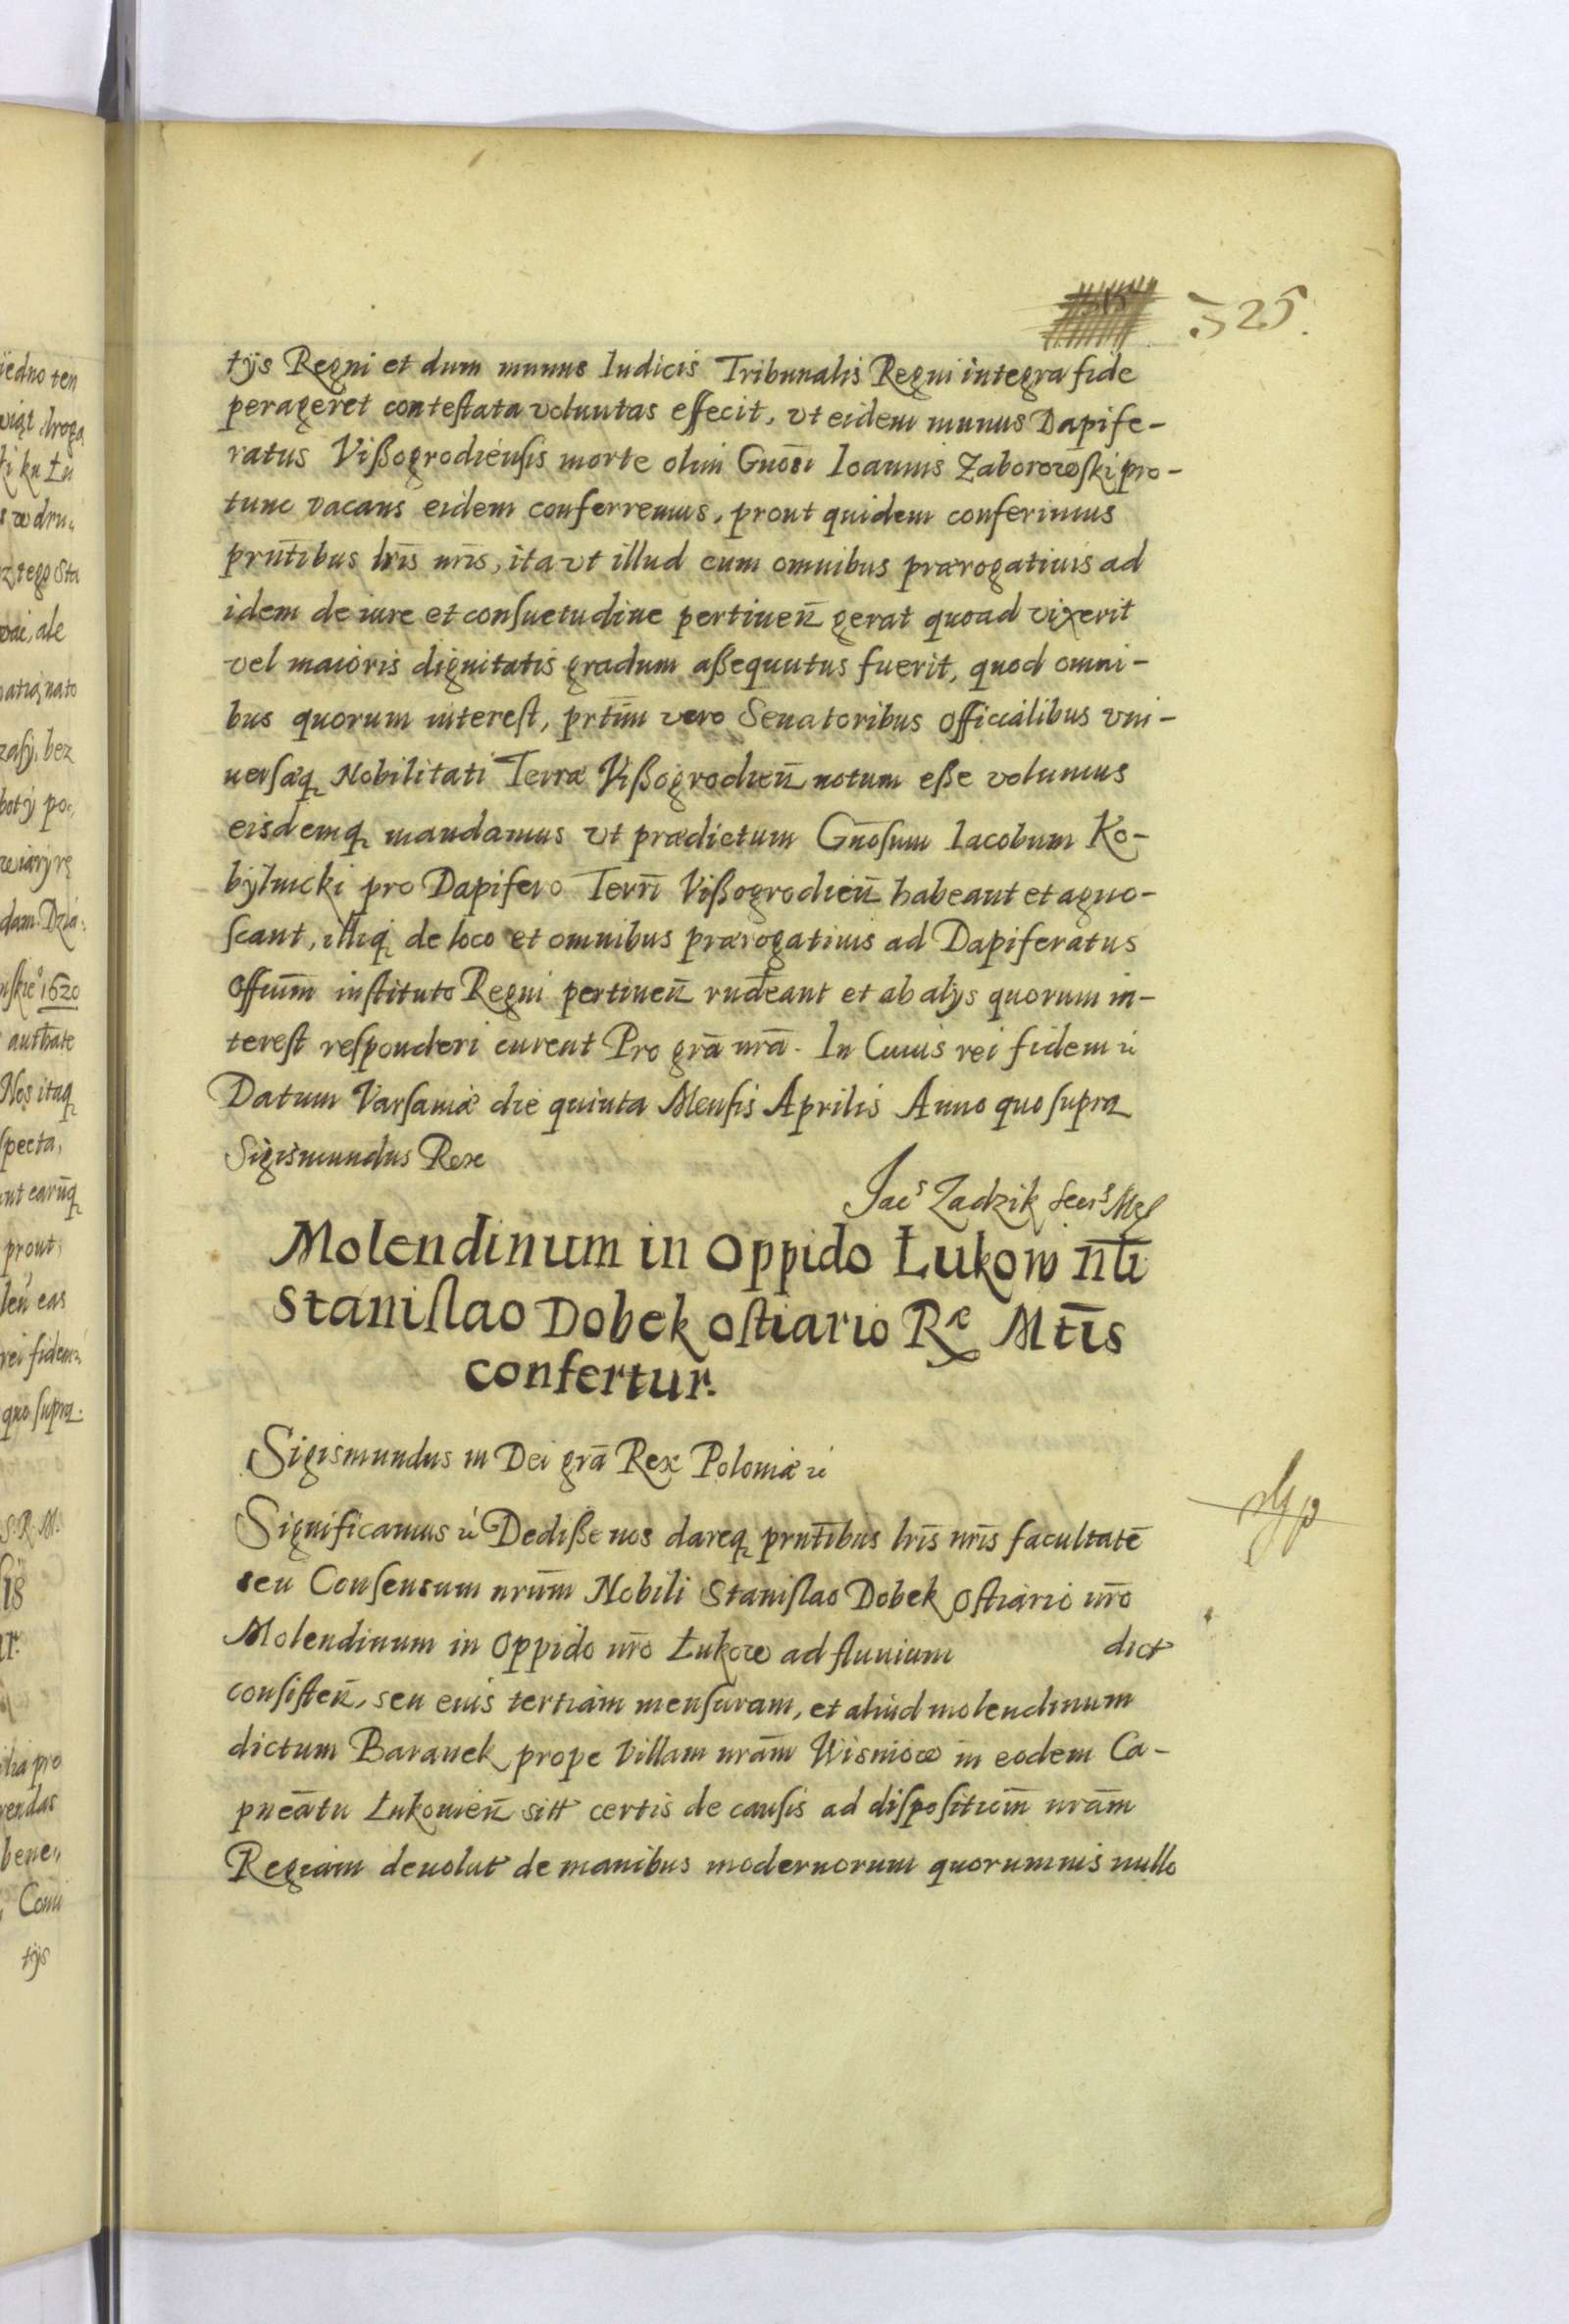 325.
tÿs Regni et dum munus Iudicis Tribunalis Regni integra fide
perageret conteſtata voluntas effecit, vt eidem munus Dapife-
ratus Vißogrodienſis morte olim Gnōsi Ioannis Zaborowſki pro-
tunc vacans eidem conferremus, prout quidem conferimus
prntībus lrīs nrīs, ita vt illud cum omnibus prærogatiuis ad
idem de iure et conſuetudine pertinen̄ gerat quoad vixerit
vel maioris dignitatis gradum aßequutus fuerit, quod omni-
bus quorum intereſt, prtīm vero Senatoribus Officialibus vni-
uerſæq Nobilitati Terræ Vißogrodien̄ notum eße volumus
eisdemq mandamus vt prædictum Gnōſum Iacobum Ko-
bÿlnicki pro Dapifero Terrī Vißogrodien̄ habeant et agno-
ſcant, illiq de loco et omnibus prærogatiuis ad Dapiferatus
Offiūm inſtituto Regni pertinen̄ rndēant et ab alÿs quorum in-
tereſt reſponderi curent Pro grā nrā. In Cuius rei fidem ꝛc
Datum Varſauiæ die quinta Menſis Aprilis Anno quo ſupra
Sigismundus Rex
Jacs Zadzik Secrs Mgſ
Molendinum in Oppido Łukow Nlī
Staniſlao Dobek oſtiario Rᵉ Mtīs
confertur.
Sigismundus III Dei grā Rex Poloniæ ꝛc
Significamus ꝛc Dediße nos dareq prntībus lrīs nrīs facultatē
seu Conſensum nrūm Nobili Staniſlao Dobek Oſtiario nrō
Molendinum in Oppido nrō Łukow ad fluuium dict
conſiſten̄, seu eius tertiam menſuram, et aliud molendinum
dictum Baranek prope Villam nrām Wisniow in eodem Ca-
pneātu Łukouien̄ sitt certis de cauſis ad diſpoſitiom̄ nrām
Regiam deuolut de manibus modernorum quorumuis nullo